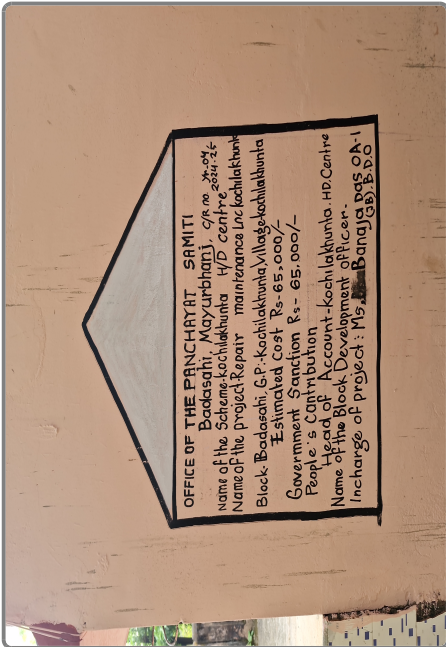 OFFICE OF THE PANCHAYAT SAMITI
Badasahi, Mayurbhanj, C/R no
2024-25
Name of the Scheme-Kochilakhunta H/D centre
Name of the project-Repair maintenance LNC Kochilakhunta
Block-Badasahi, G.P:-Kochilakhunta, Village-Kochilakhunta
Estimated Cost Rs-65,000/-
Government Sanction Rs- 65,000/-
People's Cantribution
Head of Account-Kochilakhunta. HD.Centre
Name of the Block Development officer-
Incharge of project: Ms. Banaja Das OA-1
(JB). B.D.O